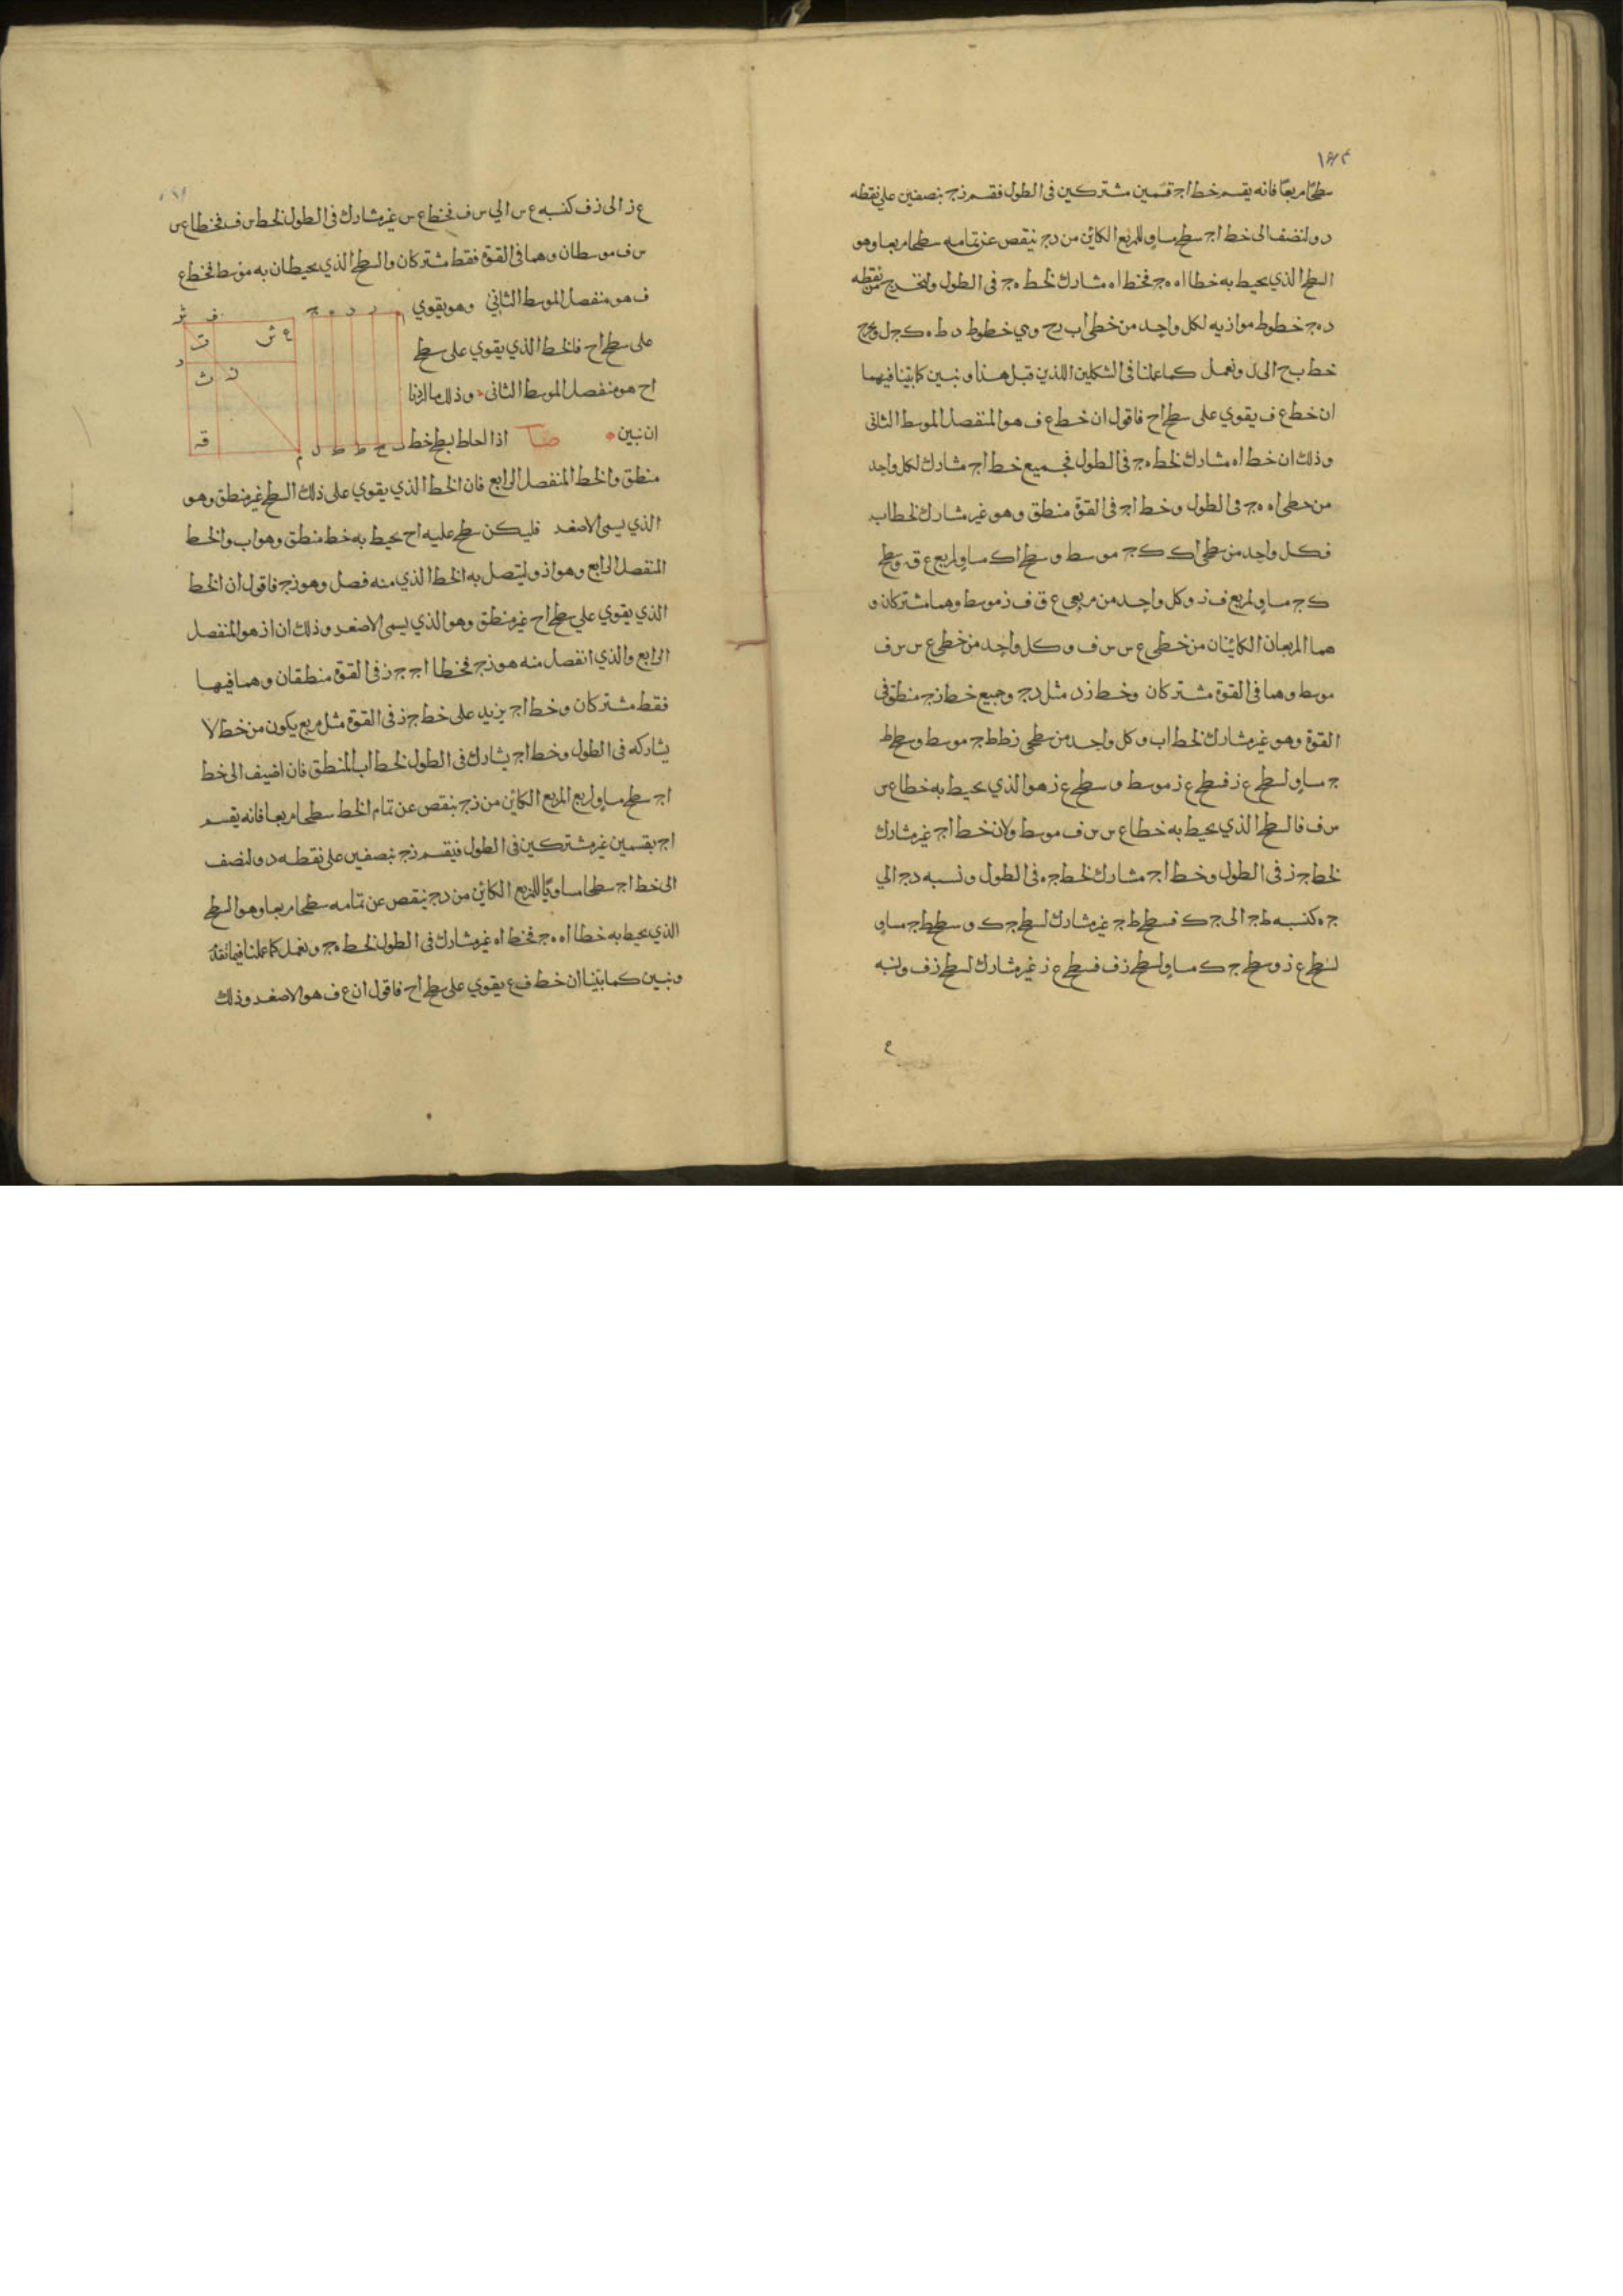 سطحا مربعا فانه يقسم خط اج قسمين مشتركين فى الطول فقسم زج بنصفين على نقطه
د ولنضف الى خط اج سطح مساو للمربع الكائن من دج ينقص عن تمامه سطحا مربعا وهو
السطح الذي يحيط به خطا اه هج فخط اه مشارك لخط هج فى الطول ولنخرج من نقطه
د ه ج خطوط موازيه لكل واحد من خطى اب رح وهي خطوط د ط ه ك ج ل ونخرج
خط ب ح الى ل ونعمل كما عملنا فى الشكلين اللذين قبل هذا ونبين كما بينا فيهما
ان خط ع ف يقوي على سطح اح فاقول ان خط ع ف هو المنفصل الموسط الثانى
وذلك ان خط اه مشارك لخط هج فى الطول فجميع خط اج مشارك لكل واحد
من خطى اه هج فى الطول وخط اج فى القوة منطق وهو غير مشارك لخط اب
فكل واحد من سطحى اك كج موسط وسطح اك مساو لمربع ع ق وسطح
ك ج مساو لمربع ف ز وكل واحد من مربعى ع ق ف ز موسط وهما مشتركان و
هما المربعان الكائنان من خطى ع س س ف وكل واحد من خطى ع س س ف
موسط وهما فى القوة مشتركان وخط زد مثل دج وجميع خط زج منطق فى
القوة وهو غير مشارك لخط اب وكل واحد من سطحى زط ط ج موسط وسطح ط
ج مساو لسطح ع ز فسطح ع ز موسط وسطح ع ز هو الذي يحيط به خطا ع س
س ف فالسطح الذي يحيط به خطا ع س س ف موسط ولان خط اج غير مشارك
لخط ج ز فى الطول وخط اج مشارك لخط جه فى الطول ونسبه دج الي
جه كنسبه ط ج الى ج ك فسطح ط ج غير مشارك لسطح ج ك وسطح ط ج مساو
لسطح ع ز وسطح ج ك مساو لسطح ز ف فسطح ع ز غير مشارك لسطح ز ف ونسبه
ع
ع ز الى ز ف كنسبه ع س الي س ف فخط ع س غير مشارك فى الطول لخط س ف فخطا ع س
س ف موسطان وهما فى القوة فقط مشتركان والسطح الذي يحيطان به موسط فخط ع
ف هو منفصل الموسط الثاني وهو يقوي
على سطح اح فالخط الذي يقوي على سطح
اح هو منفصل الموسط الثانى وذلك ما اردنا
ان نبين صا اذا احاط بسطح خط
منطق والخط المنفصل الرابع فان الخط الذي يقوي على ذلك السطح غير منطق وهو
الذي يسمى الاصغر فليكن سطح عليه اح يحيط به خط منطق وهو اب والخط
المنفصل الرابع وهو از وليتصل به الخط الذي منه فصل وهو زج فاقول ان الخط
الذي يقوي علي سطح اح غير منطق وهو الذي يسمى الاصغر وذلك ان از هو المنفصل
الرابع والذي انفصل منه هو زج فخطا اج ج ز فى القوة منطقان وهما فيها
فقط مشتركان وخط اج يزيد على خط ج ز فى القوة مثل مربع يكون من خط لا
يشاركه فى الطول وخط اج يشارك فى الطول لخط اب المنطق فان اضيف الى خط
اج سطح مساو لربع المربع الكائن من زج ينقص عن تمام الخط سطحا مربعا فانه يقسم
اج بقسمين غير مشتركين فى الطول فيقسم زج بنصفين على نقطه د ولنضف
الى خط اج سطحا مساويا للمربع الكائن من دج ينقص عن تمامه سطحا مربعا وهو السطح
الذي يحيط به خطا اه هج فخط اه غير مشارك فى الطول لخط هج ونعمل كما عملنا فيما تقدم
ونبين كما بينا ان خط ف ع يقوي على سطح اح فاقول ان ع ف هو الاصغر وذلك